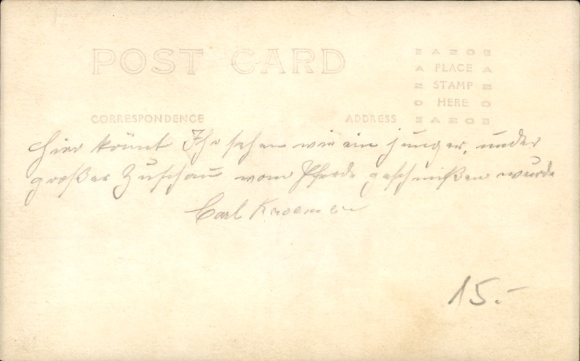 POST CARD
AZOE
A PLACE A
Z STAMP Z
O HERE O
EAZOE
CORRESPONDENCE
ADDRESS
Hier könnt Ihr sehen wie ein junger, under
großer Zuschau vom Pferde geschmißen wurde
Carl
15.-